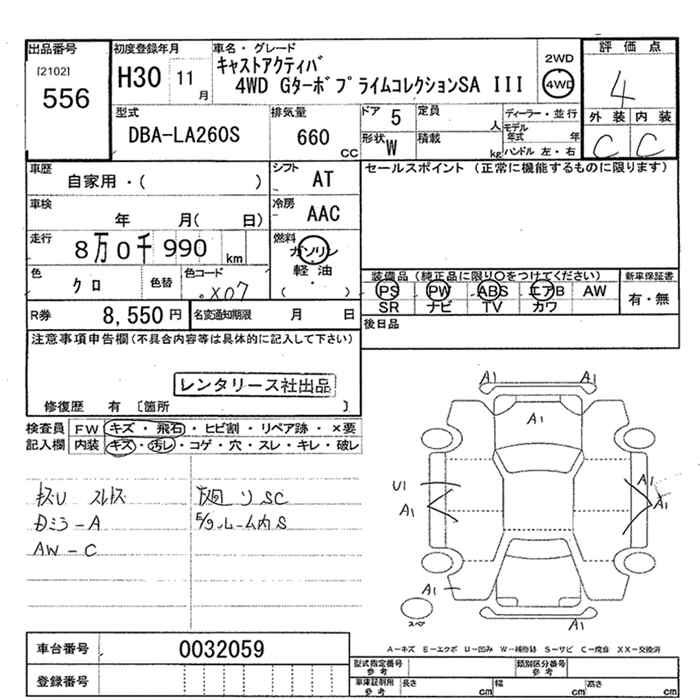 出品番号 初度登録年月 車名・グレード 評価点
[2102] 556
H30 11月
キャストアクティバ
4WD GターボプライムコレクションSA III
2WD
4WD
4
型式 排気量 ドア 5 定員 人 ディーラー・並行
外装 内装
DBA-LA260S 660 CC
形状 W 積載 kg
モデル年式 年
ハンドル 左・右
C C
車歴 自家用・( )
シフト AT
セールスポイント (正常に機能するものに限ります)
車検 年 月( 日)
冷房 AAC
走行 8万0千990 km
燃料 ガソリン・軽油・( )
色 クロ 色替 色コード X07
装備品 (純正品に限り○をつけてください) 新車保証書
PS PW ABS エアB AW 有・無
SR ナビ TV カワ
R券 8,550円 名変通知期限 月 日
後日品
注意事項申告欄(不具合内容等は具体的に記入して下さい)
レンタリース社出品
修復歴 有 〔箇所 〕
検査員 FW キズ・飛石・ヒビ割・リペア跡・×要
記入欄 内装 キズ・汚レ・コゲ・穴・スレ・キレ・破レ
Dミラ-A
AW-C
SC
ルーム内S
A1 A1
A1
U1 A1
A1 A1
A1
スペア
A1
A-キズ E-エクボ U-凹み W-補修跡 S-サビ C-腐食 XX-交換済
車台番号 0032059
登録番号
型式指定番号 参考 類別区分番号 参考
車庫証制用 参考 長さ cm 幅 cm 高さ cm